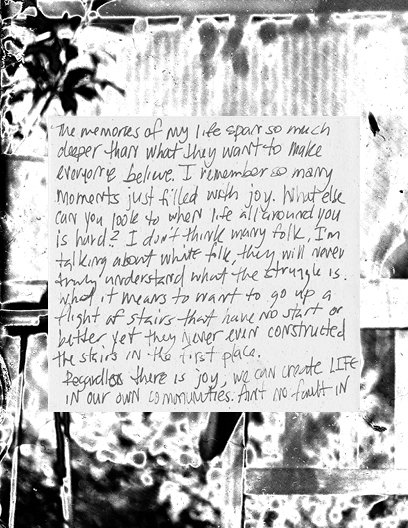 The memories of my life span so much
deeper than what they want to make
everyone believe. I remember so many
moments just filled with joy. What else
can you look to when life all around you
is hard? I don't think many folk, I'm
talking about white folk, they will never
truly understand what the struggle is.
What it means to want to go up a
flight of stairs that have no start or
better yet they never even constructed
the stairs in the first place.
Regardless there is joy, we can create LIFE
in our own communities. Aint no fault in